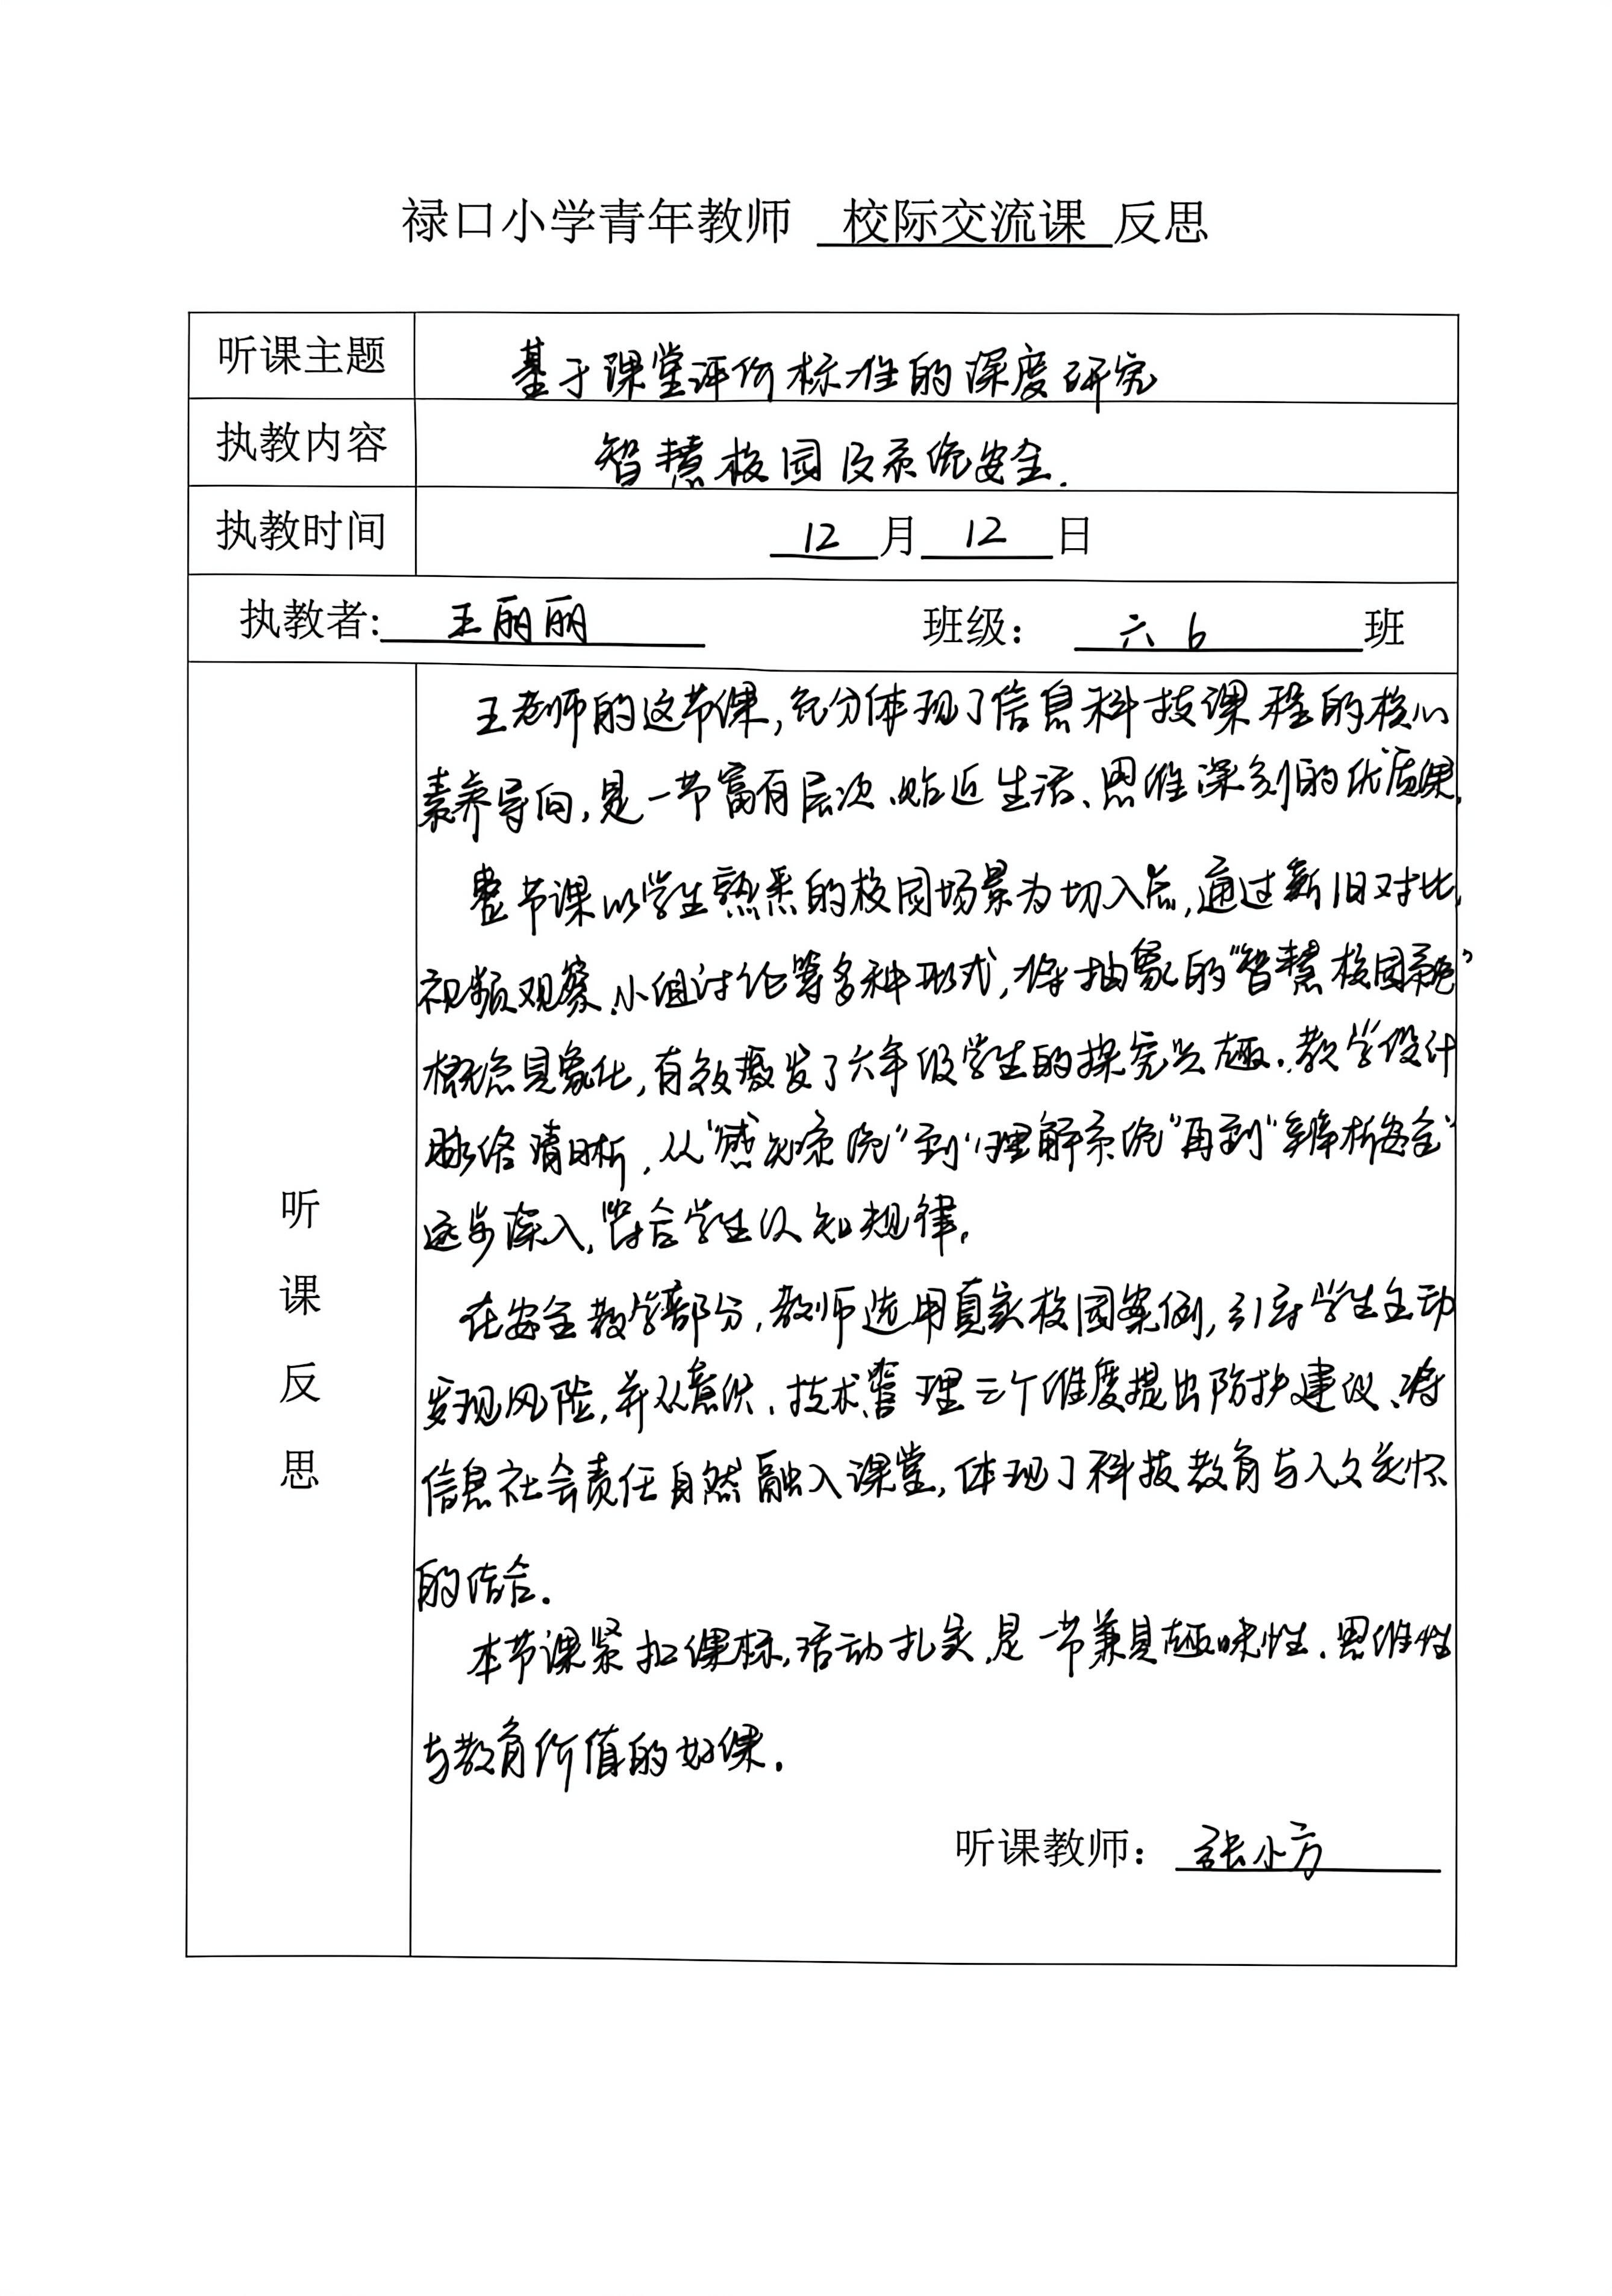 禄口小学青年教师 校际交流课 反思
听课主题 基于课堂评价标准的深度研究
执教内容 智慧校园及系统安全.
执教时间 12月12日
执教者: 王丽丽 班级： 六6班
听课反思
王老师的这节课,充分体现了信息科技课程的核心
素养导向,是一节富有层次、贴近生活、思维深刻的优质课.
整节课以学生熟悉的校园场景为切入点,通过新旧对比,
视频观察、小组讨论等多种形式,将抽象的“智慧校园系统”
概念具象化,有效激发了六年级学生的探究兴趣.教学设计
脉络清晰,从“感知系统”到“理解系统”再到“辨析安全”
逐步深入,符合学生认知规律.
在安全教学部分,教师选用真实校园案例,引导学生主动
发现风险,并从意识、技术、管理三个维度提出防护建议、将
信息社会责任自然融入课堂,体现了科技教育与人文关怀
的结合.
本节课紧扣课标,活动扎实,是一节兼具趣味性、思维性
与教育价值的好课.
听课教师： 张小方